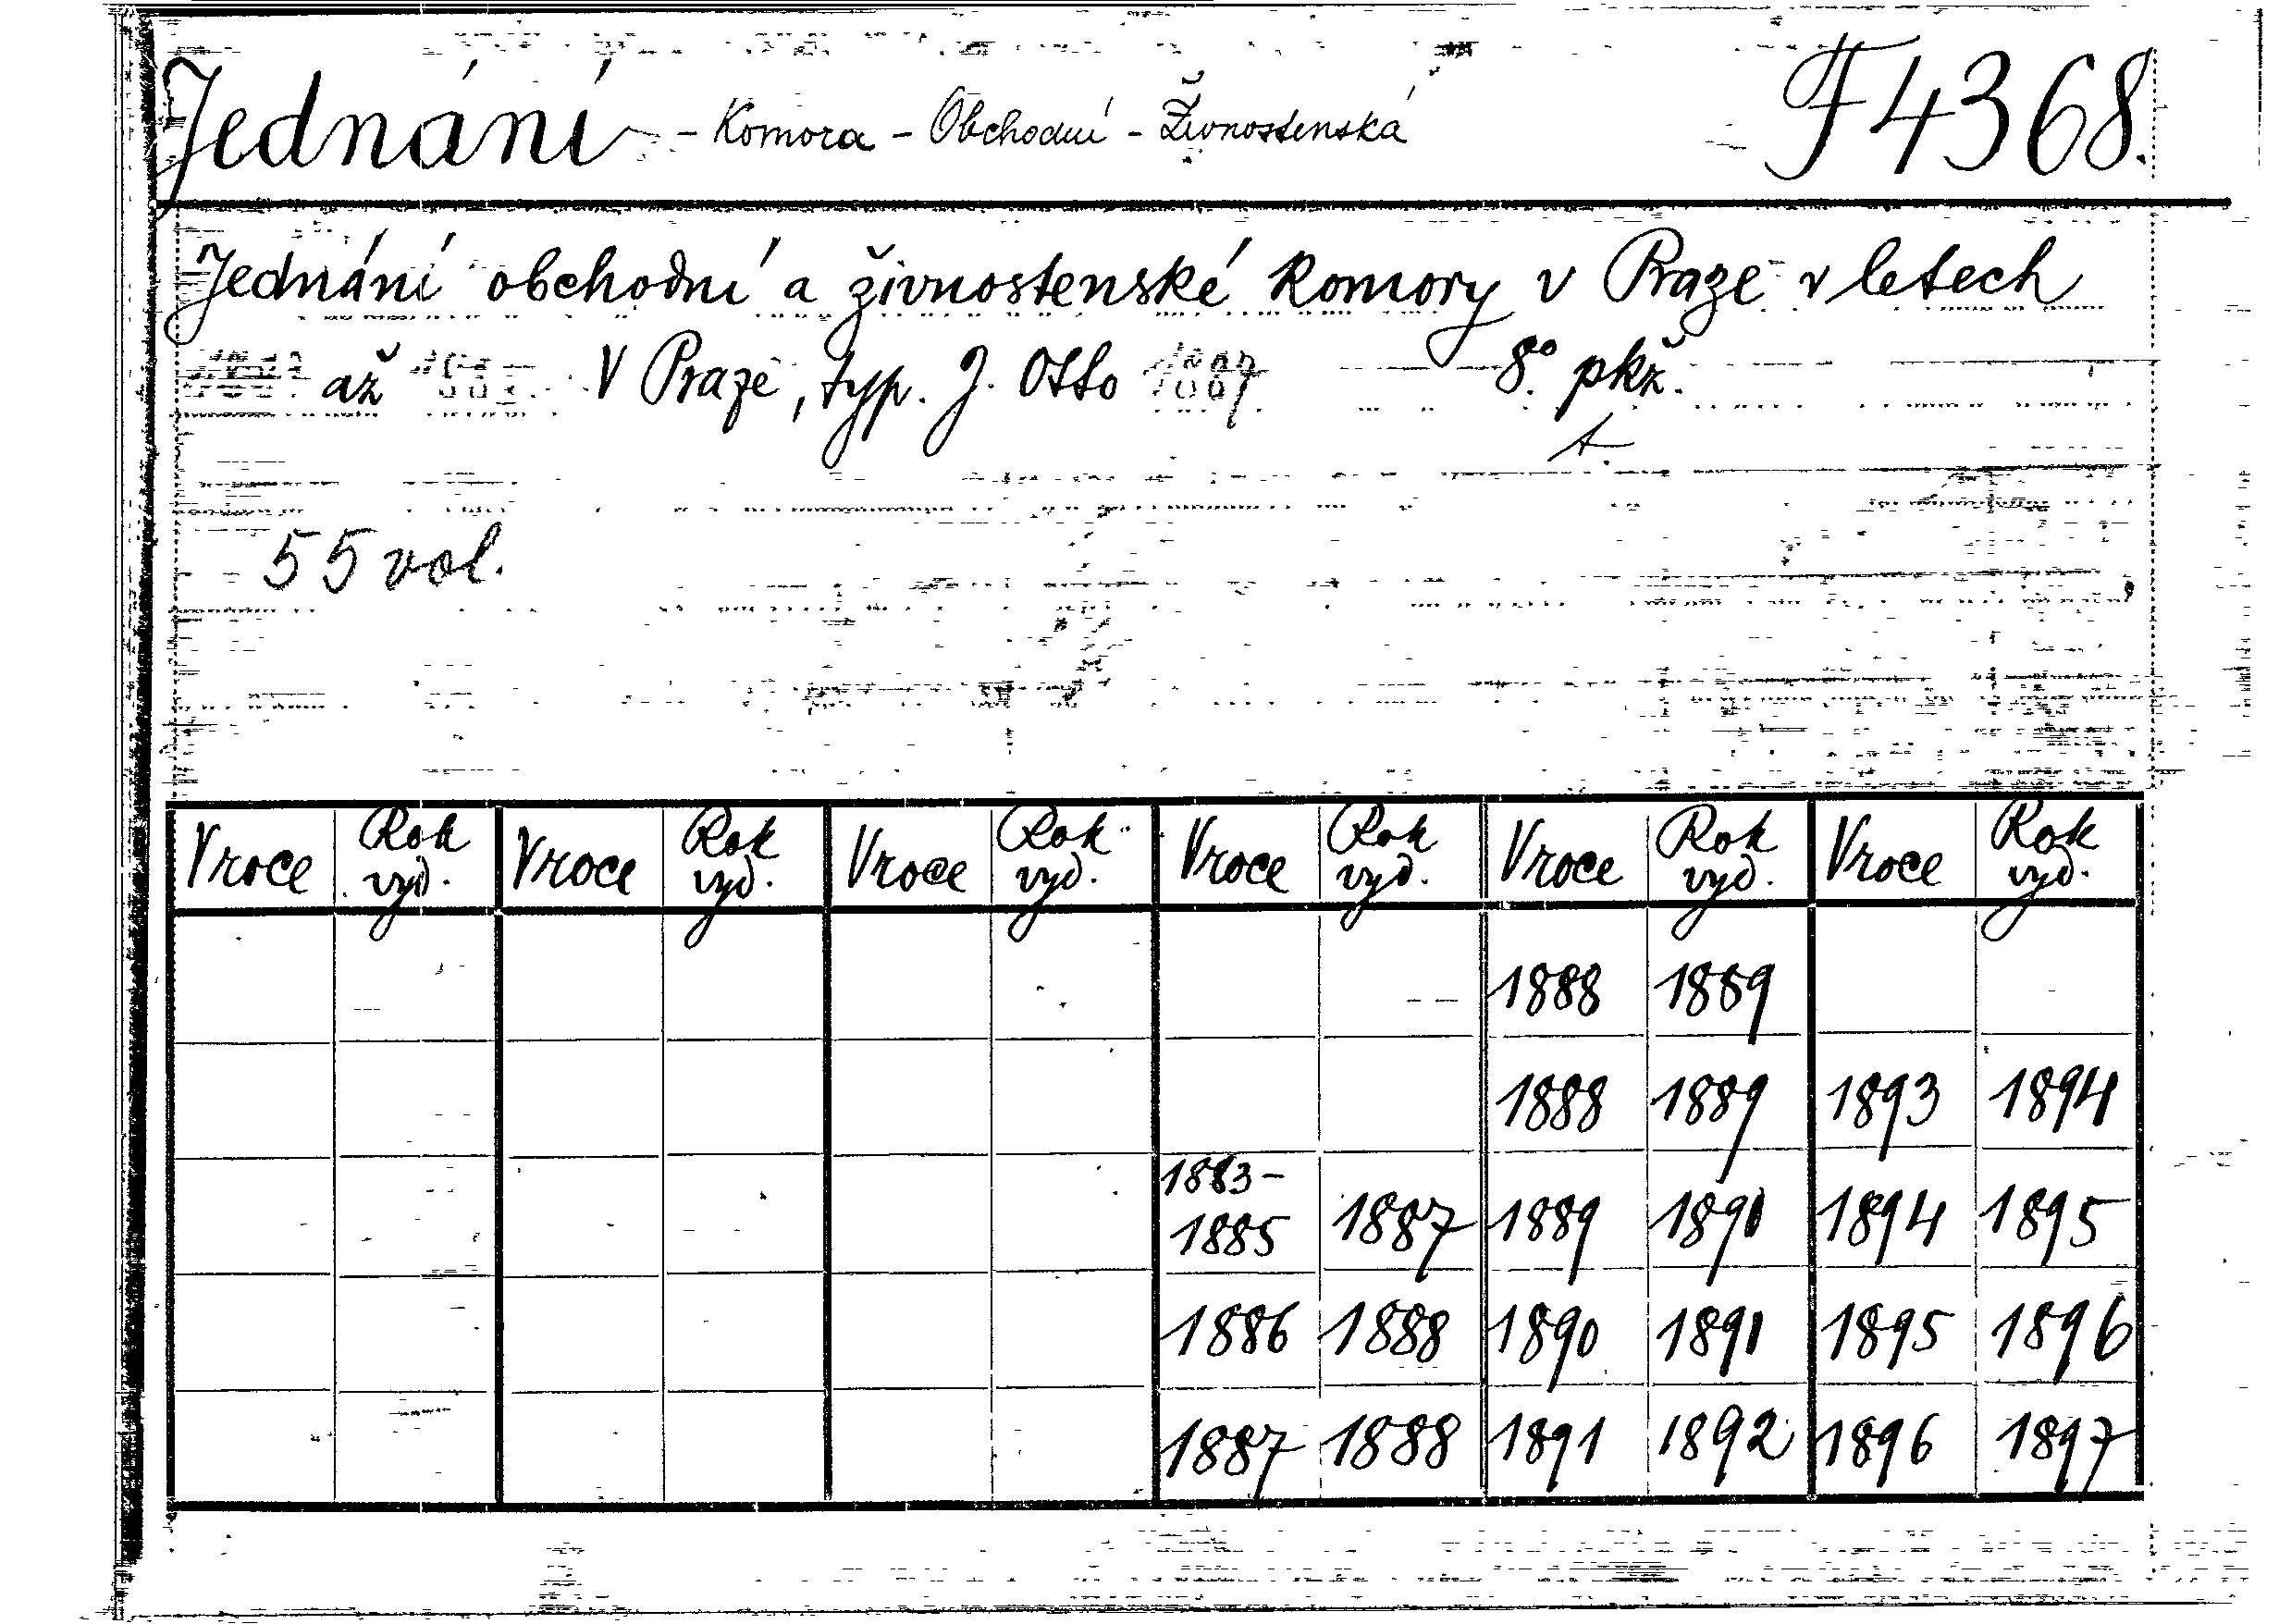 Jednání - Komora - Obchodní - Živnostenská F 4368.
Jednání obchodní a živnostenské komory v Praze v letech
až V Praze, typ. J. Otto 1887 8° pkž.
55 vol.
V roce Rok vyd. V roce Rok vyd. V roce Rok vyd. V roce Rok vyd. V roce Rok vyd. V roce Rok vyd.
1888 1889
1888 1889 1893 1894
1883-1885 1887 1889 1890 1894 1895
1886 1888 1890 1891 1895 1896
1887 1888 1891 1892 1896 1897